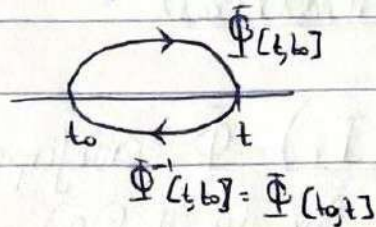 Φ[t,t₀]
t₀ t
Φ⁻¹[t,t₀] = Φ[t₀,t]